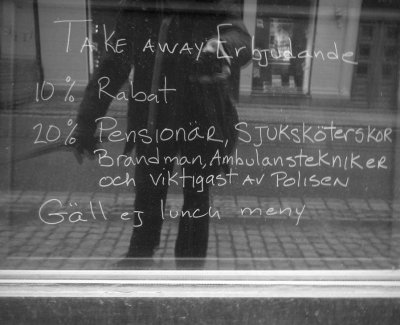 Take away Erbjudande
10% Rabat
20% Pensionär, Sjuksköterskor
Brandman, Ambulanstekniker
och viktigast av Polisen
Gäll ej lunch meny